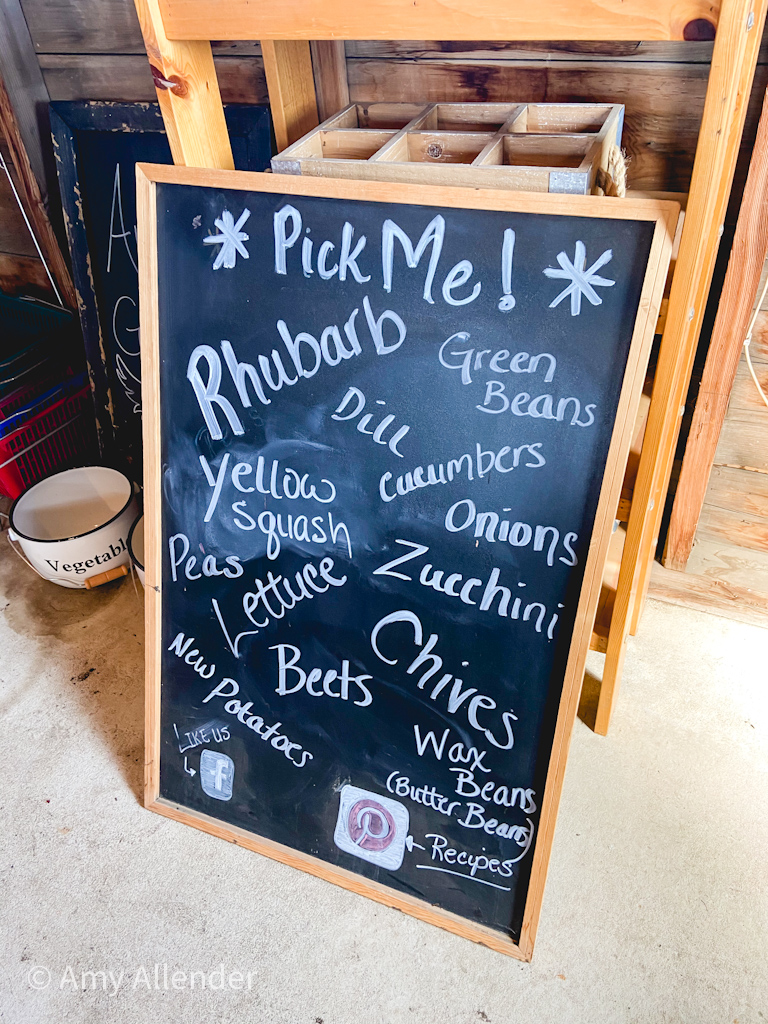 * Pick Me! *
Rhubarb
Green
Beans
Dill
Cucumbers
Yellow
Squash
Onions
Peas
Zucchini
Lettuce
Chives
Beets
New Potatoes
Wax
Beans
(Butter Beans)
LIKE US
f
Recipes
© Amy Allender